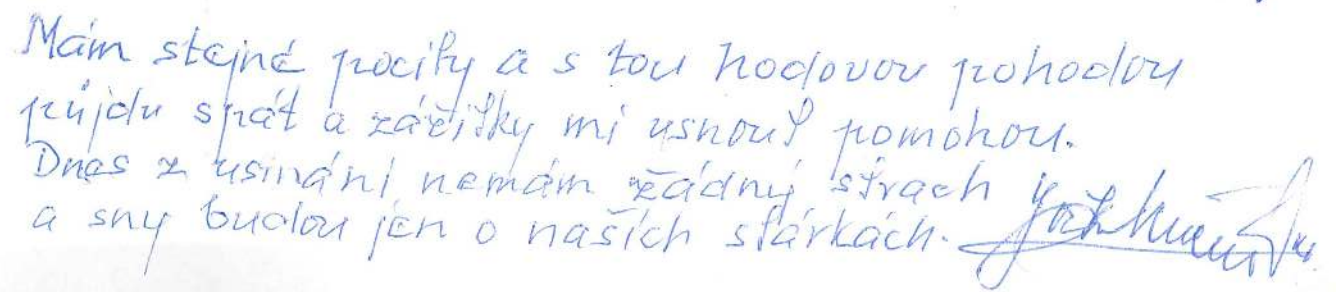 Mám stejné pocity a s tou hodovou pohodou
půjdu spát a zážitky mi usnout pomohou.
Dnes z usínání nemám žádný strach
a sny budou jen o našich stárkách.